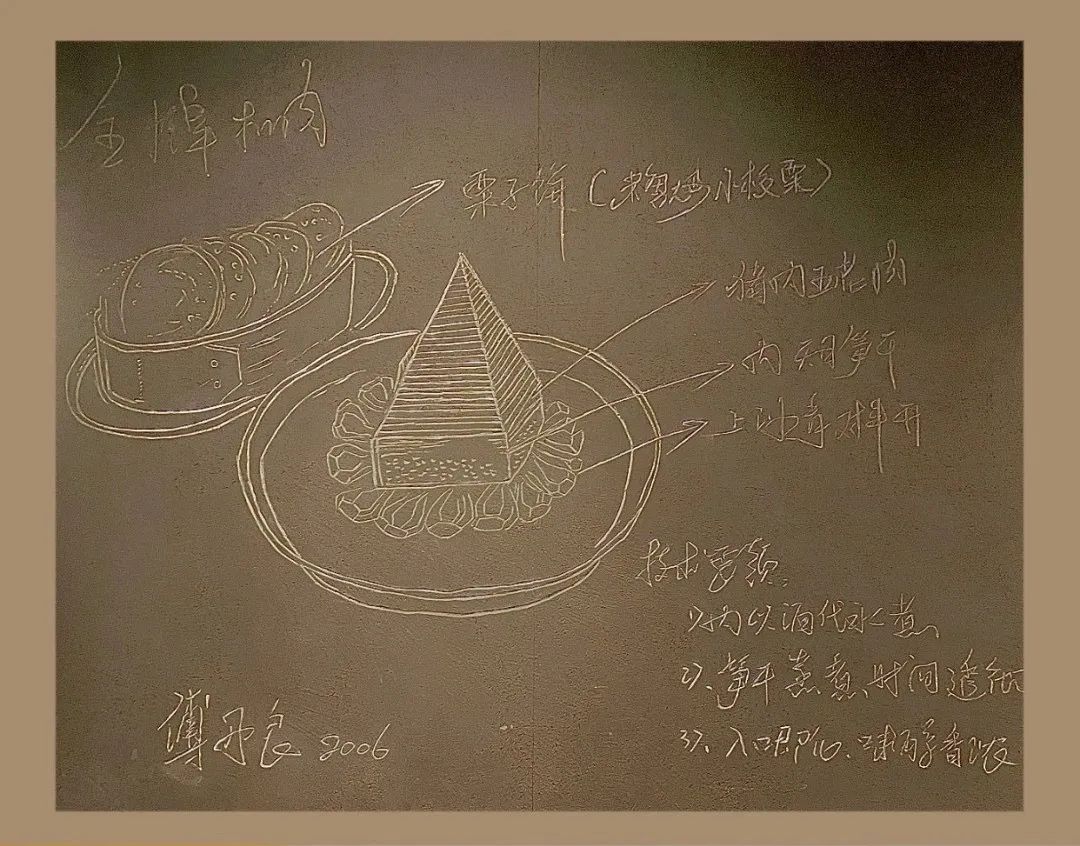 金牌扣肉
栗子饼(小板栗)
猪肉五花肉
内天目笋干
上海青对半开
技术要领:
1)、肉以酒代水煮、
2)、笋干蒸煮、时间透彻
3)、入口即化、味醇香浓
傅月良 2006